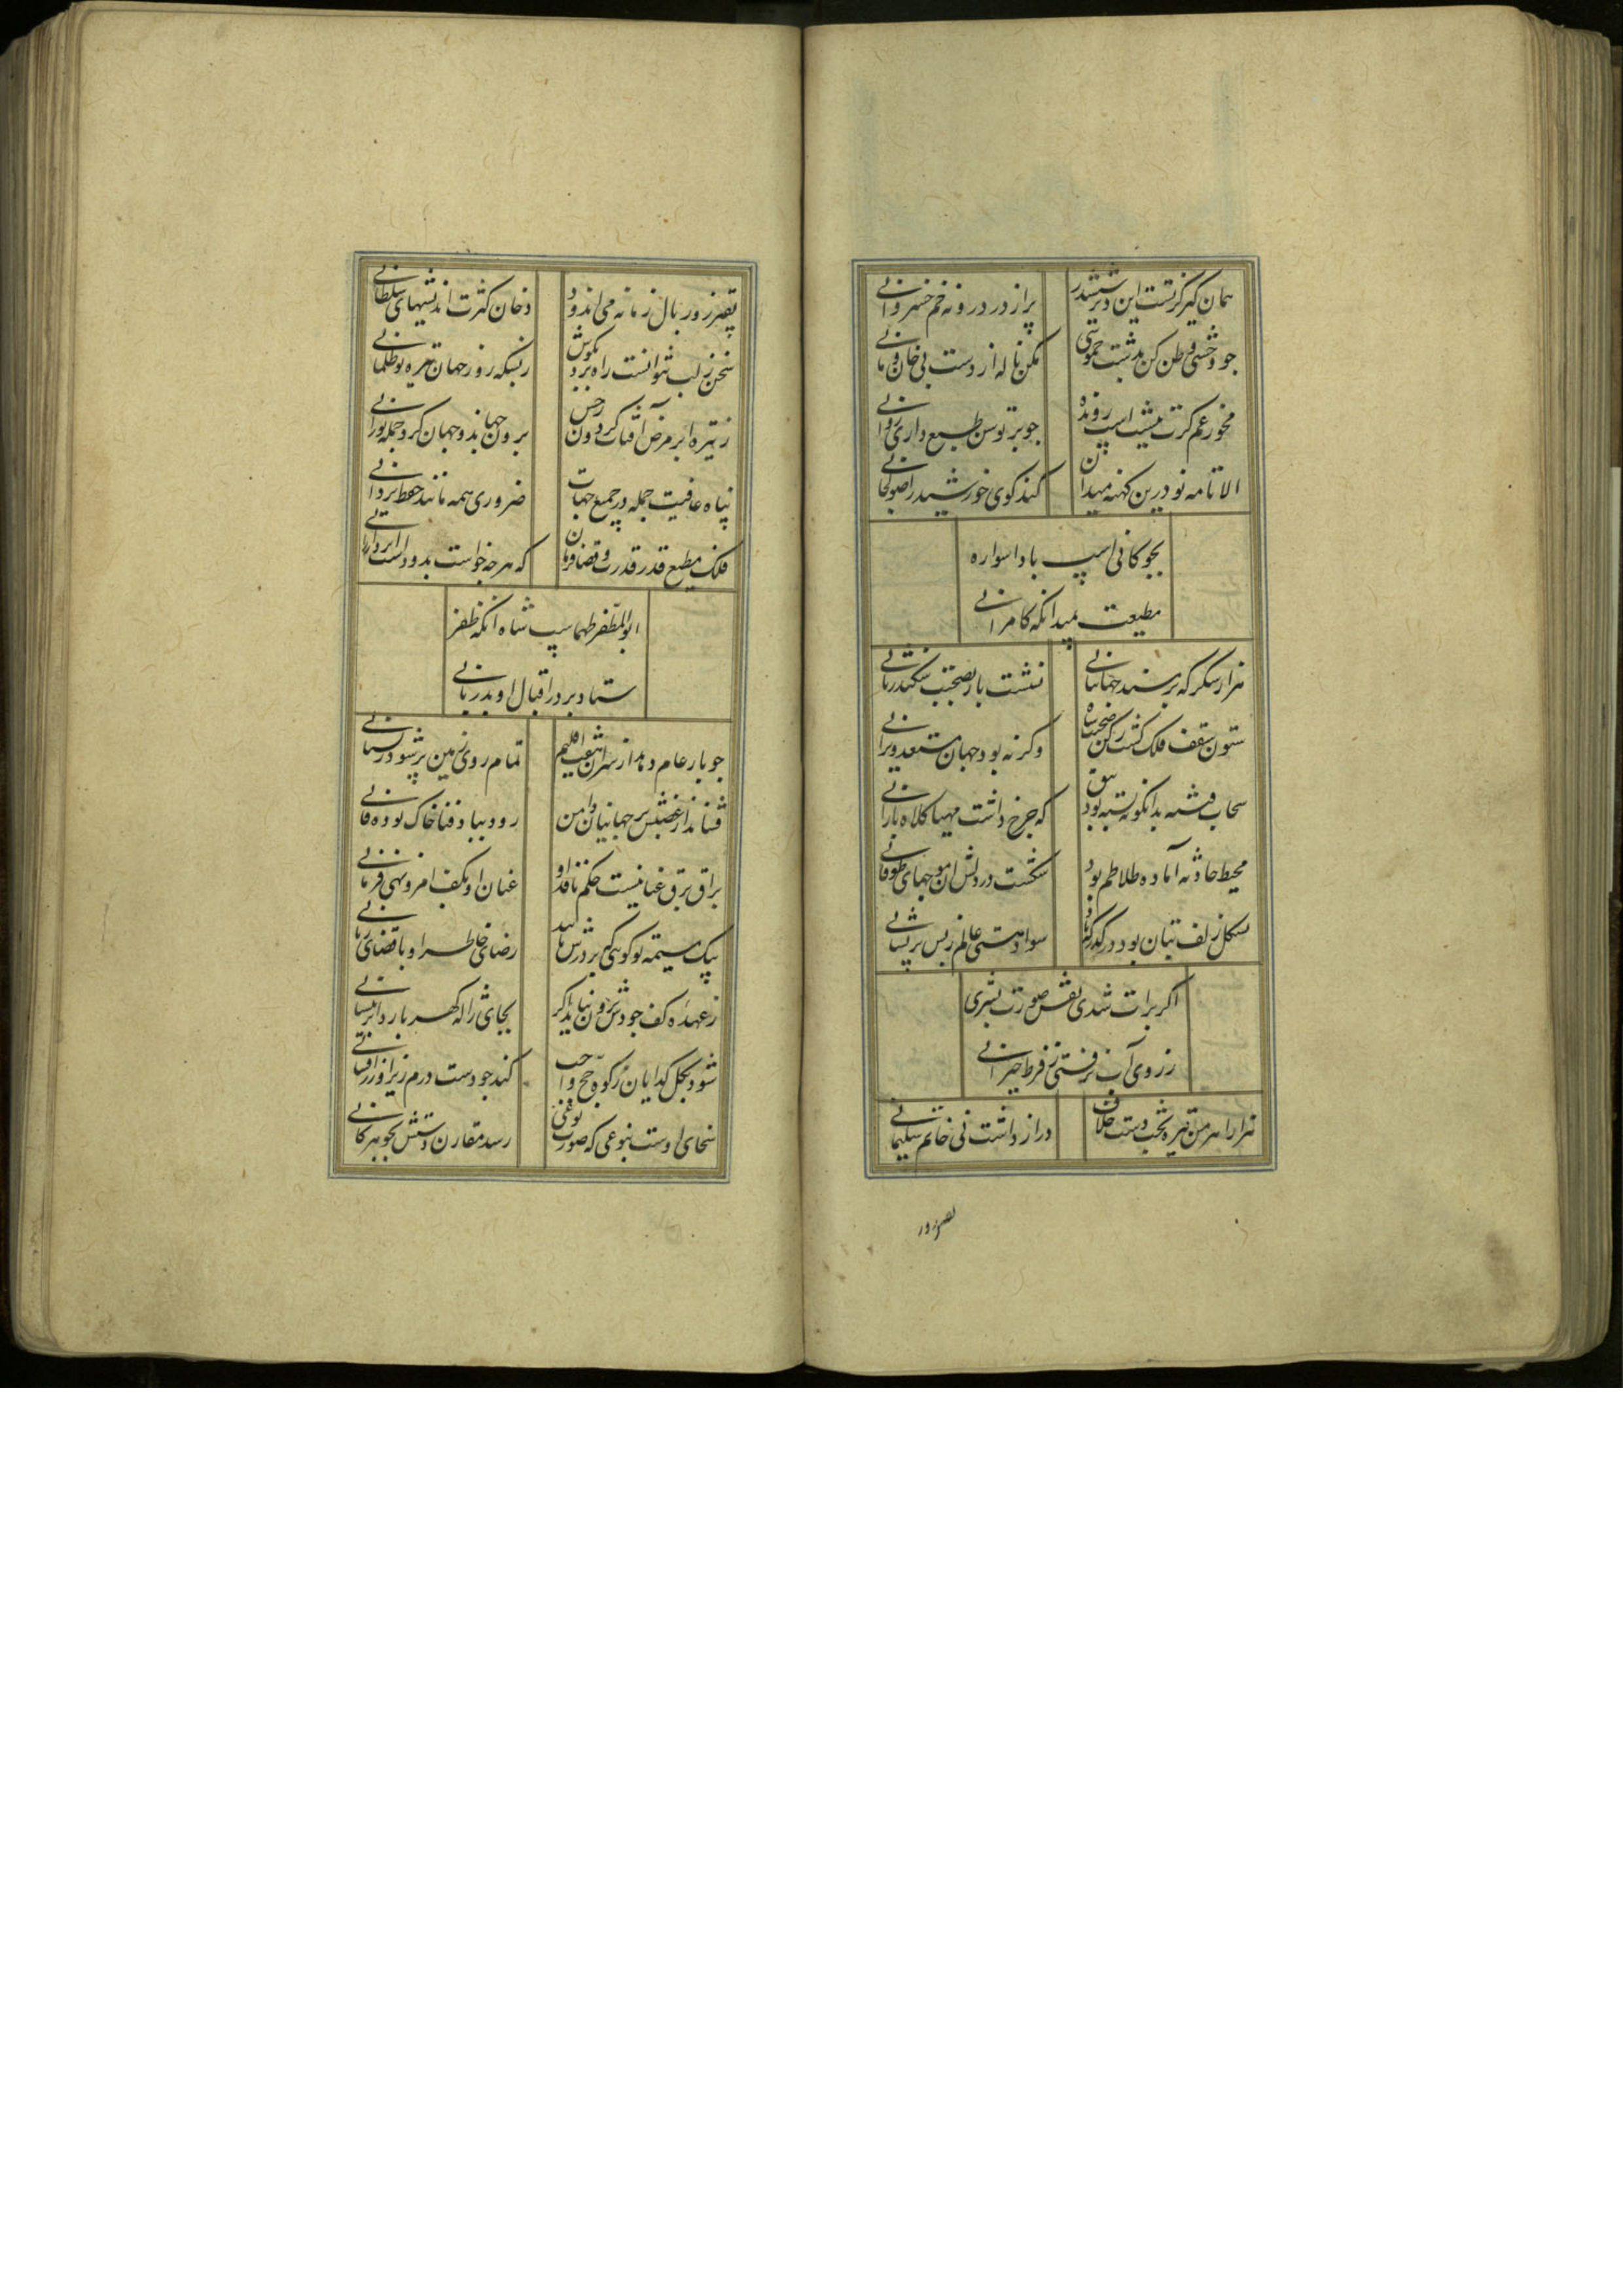 همان کیر کزتست این دیر ششدر
پر از در درونه خم خسروانی
جو وحشی وطن کن بدشت خموشی
مکن ناله از دست بی خان ومانی
مخور غم کرت نیست اسپ رونده
جو بر توسن طبع داری روانی
الا تا مه نو درین کهنه میدان
کند کوی خورشید را صولجانی
بجوکانی اسپ باد اسواره
مطیعت بمیدانکه کامرانی
هزار شکر که بر مسند جهانبانی
نشست باز بصحبت سکندر ثانی
ستون سقف فلک کشت رکن
وکرنه بود جهان مستعد ویرانی
سحاب فتنه بدانکونه بسته بود
که جرخ داشت مهیا کلاه بارانی
محیط حادثه آماده طلاطم بود
شکست در دلش ان موجهای طوفانی
بشکل زلف بتان بود در کذرکه باد
سواد هستی عالم ز بس پریشانی
اکر برات شدی نقش صورت بشری
ز روی آب نرفتی ز فرط حیرانی
هزار اهرمن تیره بخت دست خلاف
دراز داشت پی خاتم سلیمانی
بقصر زور
بقصر زور بال زمانه می اندود
دخان کثرت اندیشهای سلطانی
سخن ز لب نتوانست راه برد بکوش
ز بسکه روز جهان تیره بود ظلمانی
ز تیره ابر مرض آفتاب کردون رخش
برون جهاند وجهان کرد جمله نورانی
پناه عافیت جمله در جمیع جهات
ضروری همه مانند حفظ یزدانی
فلک مطیع قدر قدرت وقضا فرمان
که هرچه خواست بدو داست ایزد ارزانی
ابوالمظفر طهماسب شاه انکه ظفر
ستاده بر در اقبال او بدربانی
جو بار عام دهد از سران هفت اقلیم
تمام روی زمین پر شود ز پیشانی
فشاند ار غضبش بر جهانیان دامن
رود بباد فنا خاک توده فانی
براق برق عنانیست حکم نافذ او
عنان او بکف امر ونهی فرمانی
یک مشیمه تو کویی که بر درش
رضای خاطر او با قضای ربانی
ز عهده کف جودش برون نیاید اکر
بجای ژاله کهر بارد ابر نیسانی
شود بجمله کدایان زکوة وحج واجب
کند جو دست درم ریز او زر افشانی
سخای اوست بنوعی که صورت نوعی
رسد مقارن دستش بجوهر کانی